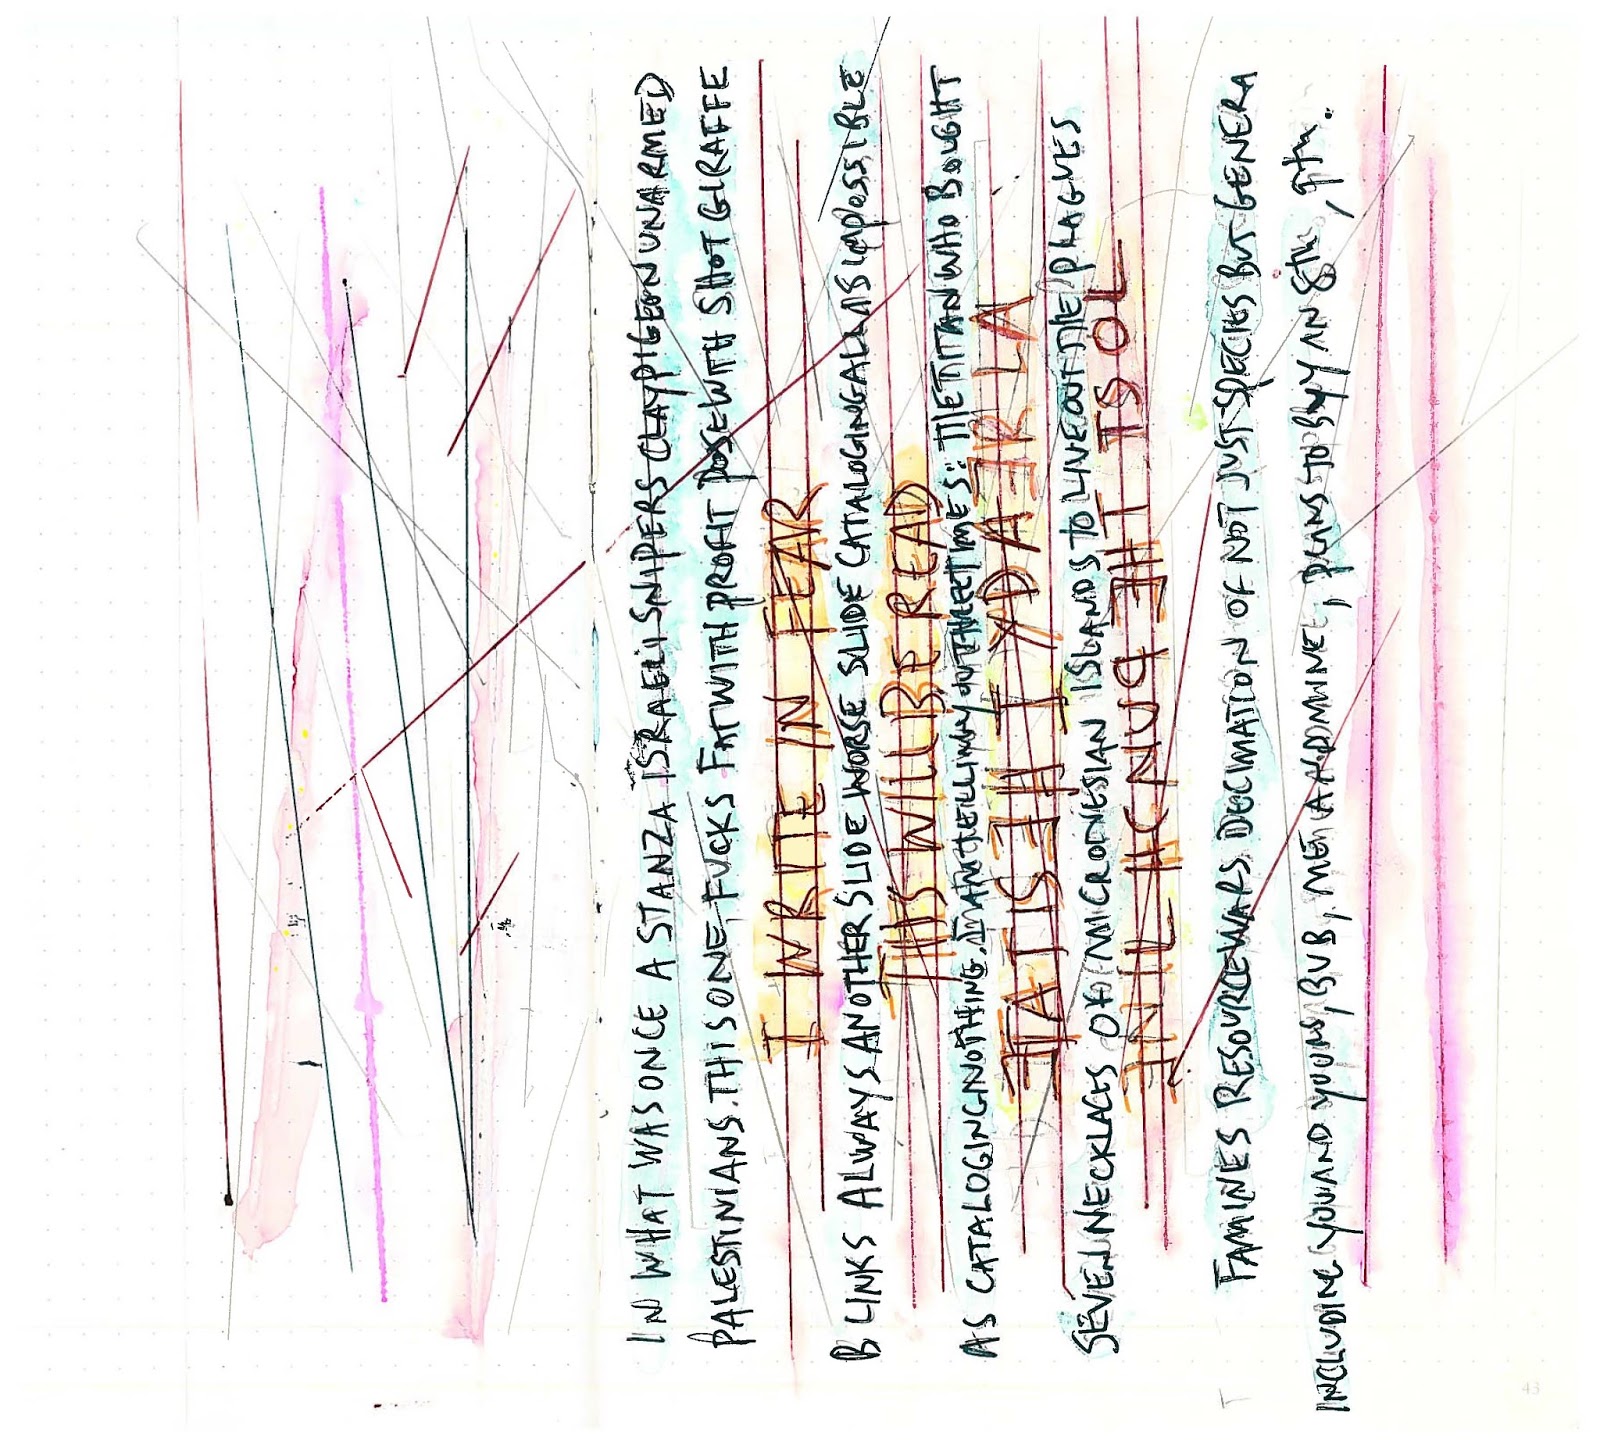 IN WHAT WAS ONCE A STANZA ISRAELI SNIPERS CLAYPIGEON UNARMED
PALESTINIANS. THIS ONE, FUCKS FAT WITH PROFIT POSE WITH SHOT GIRAFFE
I WRITE IN FEAR
BLINKS ALWAYS ANOTHER SLIDE WORSE SLIDE CATALOGING ALL AS IMPOSSIBLE
THIS WILL BE READ
AS CATALOGING NOTHING. : THE TITAN WHO BOUGHT
ETATISEH I YDAERLA
SEVEN NECKLACES OF MICRONESIAN ISLANDS TO LIVE OUT THE PLAGUES
ENIL HCNUP EHT TSOL
FAMINES RESOURCE WARS DECIMATION OF NOT JUST SPECIES BUT GENERA
INCLUDING YOU AND YOURS, BUB, ME AND MINE, PLANS TO BUY AN 8TH, 9TH.
43